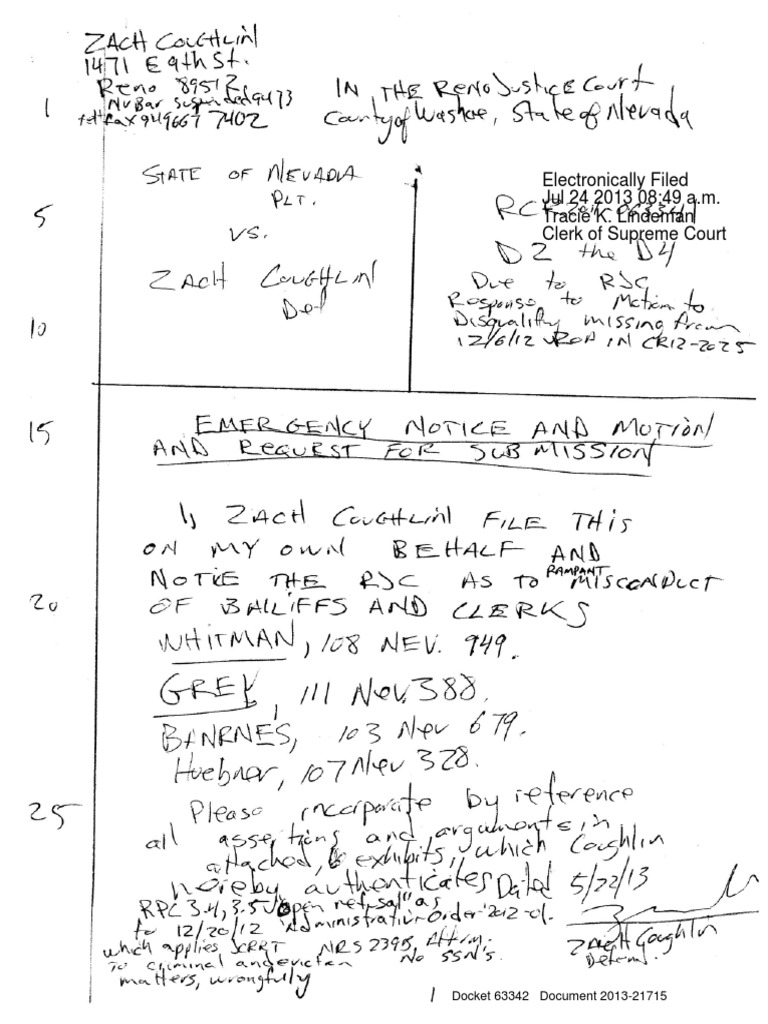 ZACH COUGHLIN
1471 E 9th St.
Reno 89512
NV Bar suspended 9473
tel fax 949 667 7402
1
IN THE Reno Justice Court
County of Washoe, State of Nevada
STATE OF NEVADA
PLT.
vs.
ZACH COUGHLIN
Def
Electronically Filed
Jul 24 2013 08:49 a.m.
Tracie K. Lindeman
Clerk of Supreme Court
D2 the D4
Due to RJC
Response to Motion to
Disqualify missing from
12/6/12 ROA IN CR12-2025
5
10
15
EMERGENCY NOTICE AND MOTION
AND REQUEST FOR SUBMISSION
I, ZACH COUGHLIN FILE THIS
ON MY OWN BEHALF AND
NOTICE THE RJC AS TO RAMPANT MISCONDUCT
20
OF BAILIFFS AND CLERKS
WHITMAN, 108 NEV. 949.
GREY, 111 Nev. 388.
BANRNES, 103 Nev 679.
Huebner, 107 Nev 328.
25
Please incorporate by reference
all assertions and arguments in
attached, & exhibits, which Coughlin
hereby authenticates Dated 5/22/13
RPC 3.4, 3.5 "open refusal" as
to 12/20/12 Administrative Order 2012-01.
which applies JCRRT NRS 239B, Affirm.
to criminal and eviction No SSN's.
matters, wrongfully
Zach Coughlin
Defend.
1
Docket 63342 Document 2013-21715